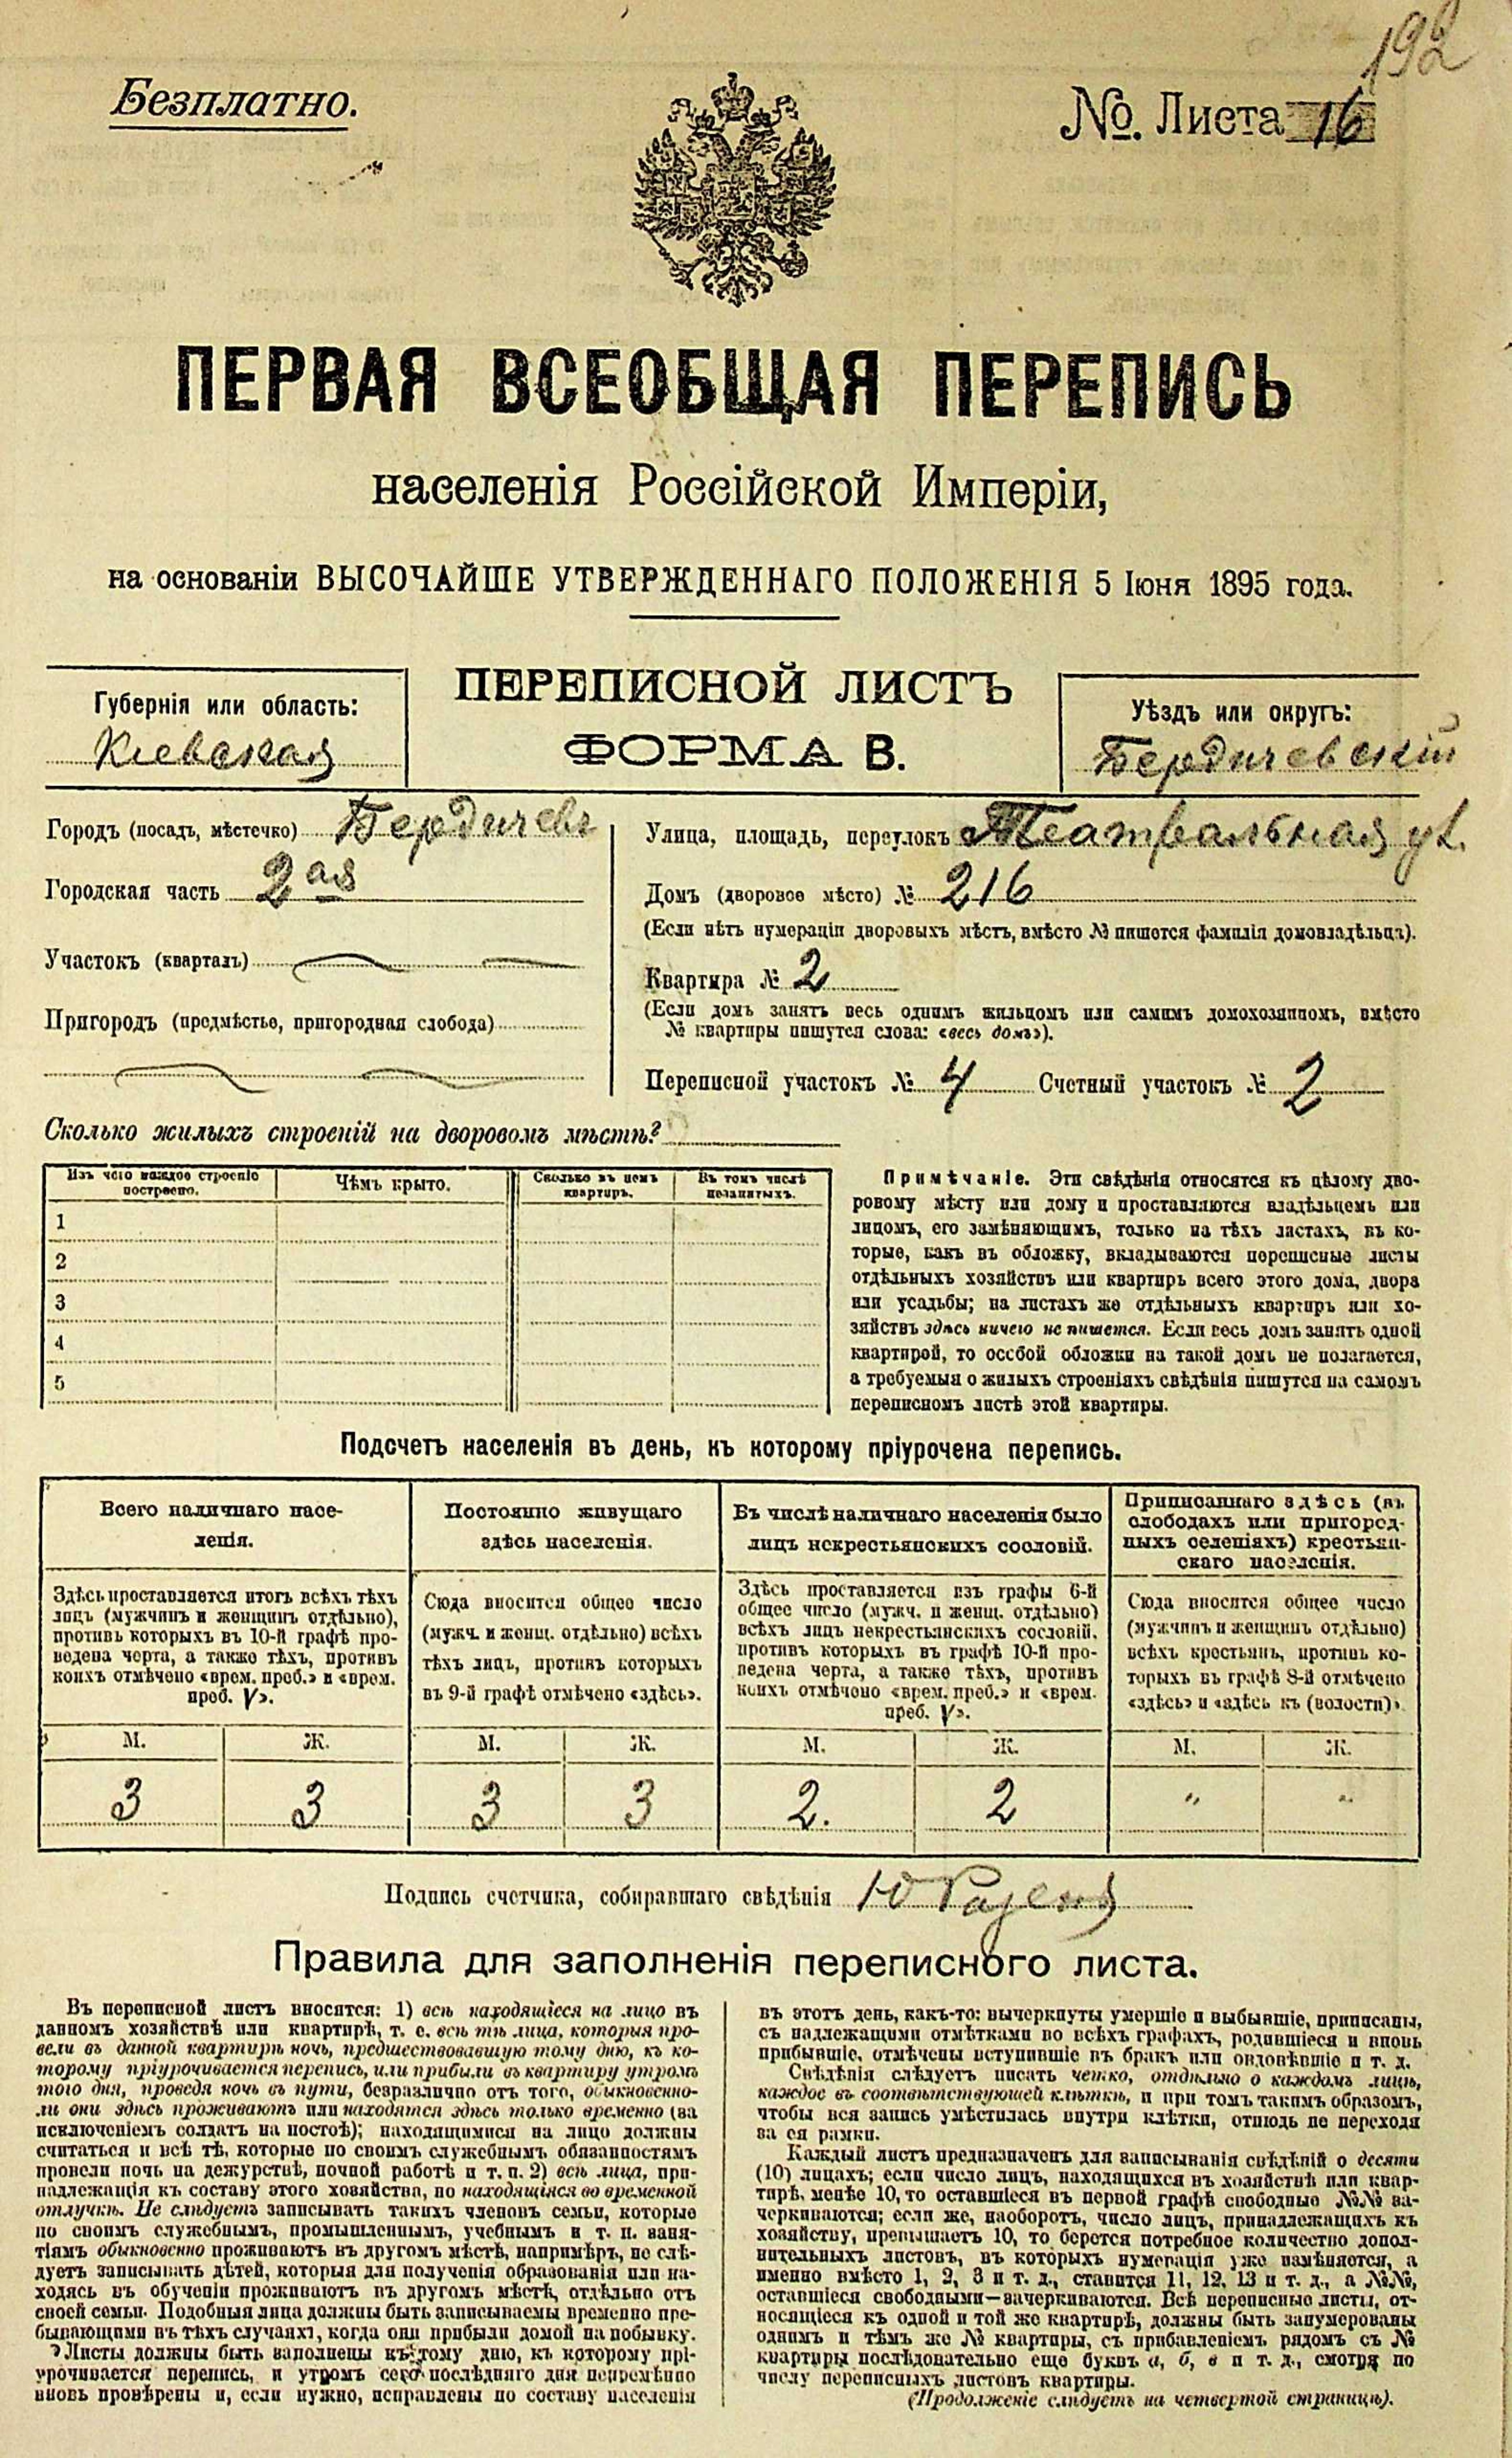 192
Безплатно.
№. Листа 16
ПЕРВАЯ ВСЕОБЩАЯ ПЕРЕПИСЬ
населенія Россійской Имперіи,
на основаніи ВЫСОЧАЙШЕ УТВЕРЖДЕННАГО ПОЛОЖЕНІЯ 5 Іюня 1895 года.
Губернія или область:
Кіевская
ПЕРЕПИСНОЙ ЛИСТЪ
ФОРМА В.
Уѣздъ или округъ:
Бердичевскій
Городъ (посадъ, мѣстечко) Бердичевъ
Городская часть 2ая
Участокъ (кварталъ)
Пригородъ (предмѣстье, пригородная слобода)
Улица, площадь, переулокъ Театральная ул.
Домъ (дворовое мѣсто) № 216
(Если нѣтъ нумераціи дворовыхъ мѣстъ, вмѣсто № пишется фамилія домовладѣльца).
Квартира № 2
(Если домъ занятъ весь однимъ жильцомъ или самимъ домохозяиномъ, вмѣсто
№ квартиры пишутся слова: «весь домъ»).
Переписной участокъ № 4 Счетный участокъ № 2
Сколько жилыхъ строеній на дворовомъ мѣстѣ?
Изъ чего каждое строеніе
построено.
Чѣмъ крыто.
Сколько въ немъ
квартиръ.
Въ томъ числѣ
незанятыхъ.
1
2
3
4
5
Примѣчаніе. Эти свѣдѣнія относятся къ цѣлому дво-
ровому мѣсту или дому и проставляются владѣльцемъ или
лицомъ, его замѣняющимъ, только на тѣхъ листахъ, въ ко-
торые, какъ въ обложку, вкладываются переписные листы
отдѣльныхъ хозяйствъ или квартиръ всего этого дома, двора
или усадьбы; на листахъ же отдѣльныхъ квартиръ или хо-
зяйствъ здѣсь ничего не пишется. Если весь домъ занятъ одной
квартирой, то особой обложки на такой домъ не полагается,
а требуемыя о жилыхъ строеніяхъ свѣдѣнія пишутся на самомъ
переписномъ листѣ этой квартиры.
Подсчетъ населенія въ день, къ которому пріурочена перепись.
Всего наличнаго насе-
ленія.
Здѣсь проставляется итогъ всѣхъ тѣхъ
лицъ (мужчинъ и женщинъ отдѣльно),
противъ которыхъ въ 10-й графѣ про-
ведена черта, а также тѣхъ, противъ
коихъ отмѣчено «врем. преб.» и «врем.
преб. V».
М. Ж.
3 3
Постоянно живущаго
здѣсь населенія.
Сюда вносится общее число
(мужч. и женщ. отдѣльно) всѣхъ
тѣхъ лицъ, противъ которыхъ
въ 9-й графѣ отмѣчено «здѣсь».
М. Ж.
3 3
Въ числѣ наличнаго населенія было
лицъ некрестьянскихъ сословій.
Здѣсь проставляется изъ графы 6-й
общее число (мужч. и женщ. отдѣльно)
всѣхъ лицъ некрестьянскихъ сословій,
противъ которыхъ въ графѣ 10-й про-
ведена черта, а также тѣхъ, противъ
коихъ отмѣчено «врем. преб.» и «врем.
преб. V».
М. Ж.
2. 2
Приписаннаго здѣсь (въ
слободахъ или пригород-
ныхъ селеніяхъ) крестьян-
скаго населенія.
Сюда вносится общее число
(мужчинъ и женщинъ отдѣльно)
всѣхъ крестьянъ, противъ ко-
торыхъ въ графѣ 8-й отмѣчено
«здѣсь» и «здѣсь къ (волости)».
М. Ж.
" "
Подпись счетчика, собиравшаго свѣдѣнія
Правила для заполненія переписного листа.
Въ переписной листъ вносятся: 1) всѣ находящіеся на лицо въ
данномъ хозяйствѣ или квартирѣ, т. е. всѣ тѣ лица, которыя про-
вели въ данной квартирѣ ночь, предшествовавшую тому дню, къ ко-
торому пріурочивается перепись, или прибыли въ квартиру утромъ
того дня, проведя ночь въ пути, безразлично отъ того, обыкновенно-
ли они здѣсь проживаютъ или находятся здѣсь только временно (за
исключеніемъ солдатъ на постоѣ); находящимися на лицо должны
считаться и всѣ тѣ, которые по своимъ служебнымъ обязанностямъ
провели ночь на дежурствѣ, ночной работѣ и т. п. 2) всѣ лица, при-
надлежащія къ составу этого хозяйства, но находящіяся во временной
отлучкѣ. Не слѣдуетъ записывать такихъ членовъ семьи, которые
по своимъ служебнымъ, промышленнымъ, учебнымъ и т. п. заня-
тіямъ обыкновенно проживаютъ въ другомъ мѣстѣ, напримѣръ, не слѣ-
дуетъ записывать дѣтей, которыя для полученія образованія или на-
ходясь въ обученіи проживаютъ въ другомъ мѣстѣ, отдѣльно отъ
своей семьи. Подобныя лица должны быть записываемы временно пре-
бывающими въ тѣхъ случаяхъ, когда они прибыли домой на побывку.
Листы должны быть заполнены къ тому дню, къ которому прі-
урочивается перепись, и утромъ сего послѣдняго дня непремѣнно
вновь провѣрены и, если нужно, исправлены по составу населенія
въ этотъ день, какъ-то: вычеркнуты умершіе и выбывшіе, приписаны,
съ надлежащими отмѣтками во всѣхъ графахъ, родившіеся и вновь
прибывшіе, отмѣчены вступившіе въ бракъ или овдовѣвшіе и т. д.
Свѣдѣнія слѣдуетъ писать четко, отдѣльно о каждомъ лицѣ,
каждое въ соотвѣтствующей клѣткѣ, и при томъ такимъ образомъ,
чтобы вся запись умѣстилась внутри клѣтки, отнюдь не переходя
за ея рамки.
Каждый листъ предназначенъ для записыванія свѣдѣній о десяти
(10) лицахъ; если число лицъ, находящихся въ хозяйствѣ или квар-
тирѣ, менѣе 10, то оставшіеся въ первой графѣ свободные №№ за-
черкиваются; если же, наоборотъ, число лицъ, принадлежащихъ къ
хозяйству, превышаетъ 10, то берется потребное количество допол-
нительныхъ листовъ, въ которыхъ нумерація уже измѣняется, а
именно вмѣсто 1, 2, 3 и т. д., ставится 11, 12, 13 и т. д., а №№,
оставшіеся свободными—зачеркиваются. Всѣ переписные листы, от-
носящіеся къ одной и той же квартирѣ, должны быть занумерованы
однимъ и тѣмъ же № квартиры, съ прибавленіемъ рядомъ съ №
квартиры послѣдовательно еще буквъ а, б, в и т. д., смотря по
числу переписныхъ листовъ квартиры.
(Продолженіе слѣдуетъ на четвертой страницѣ).